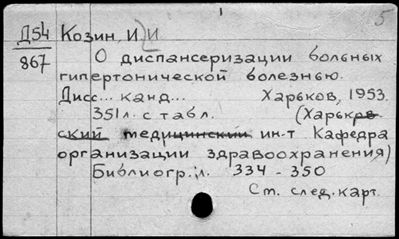 5
Д54 Козин, И. И
867 О диспансеризации больных
гипертонической болезнью.
Дисс... канд... Харьков, 1953.
351л. с табл. (Харьков
ский медицинский ин-т Кафедра
организации здравоохранения)
Библиогр: л. 334 - 350
См. след. карт.